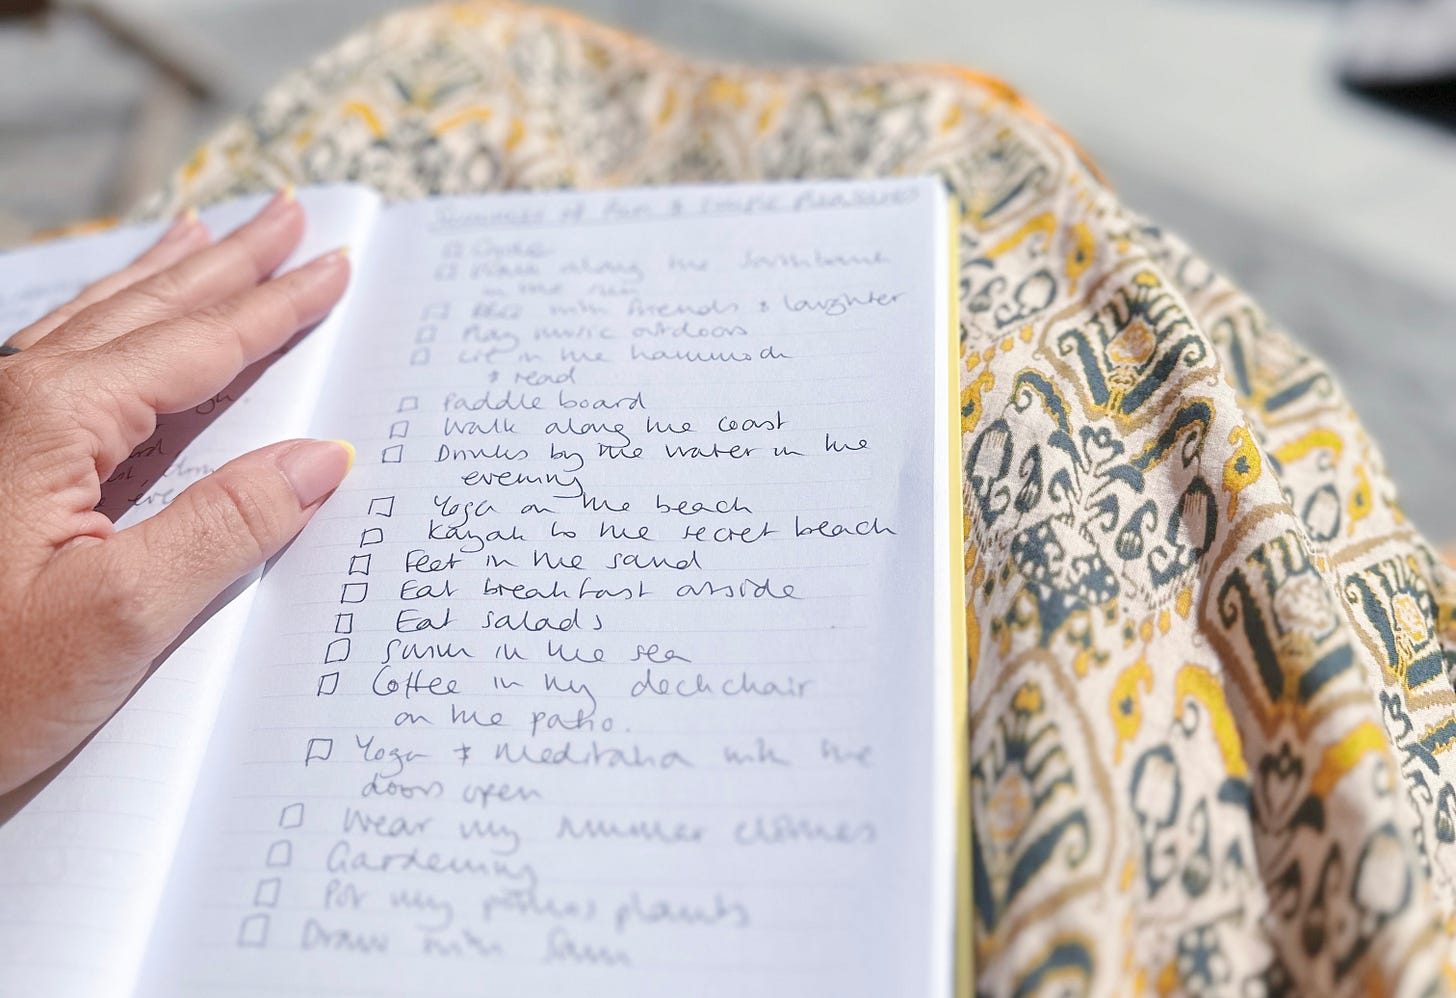 Summer of fun & simple pleasures
□ Cycle
□ Walk along the
in the sun
□ BBQ with friends & laughter
□ Play music outdoors
□ Lie in the hammock
& read
□ Paddle board
□ Walk along the coast
□ Drinks by the water in the
evening
□ Yoga on the beach
□ Kayak to the secret beach
□ Feet in the sand
□ Eat breakfast outside
□ Eat salads
□ Swim in the sea
□ Coffee in my deckchair
on the patio.
□ Yoga & Meditation with the
doors open
□ Wear my summer clothes
□ Gardening
□ Pot my plants
□ Draw with